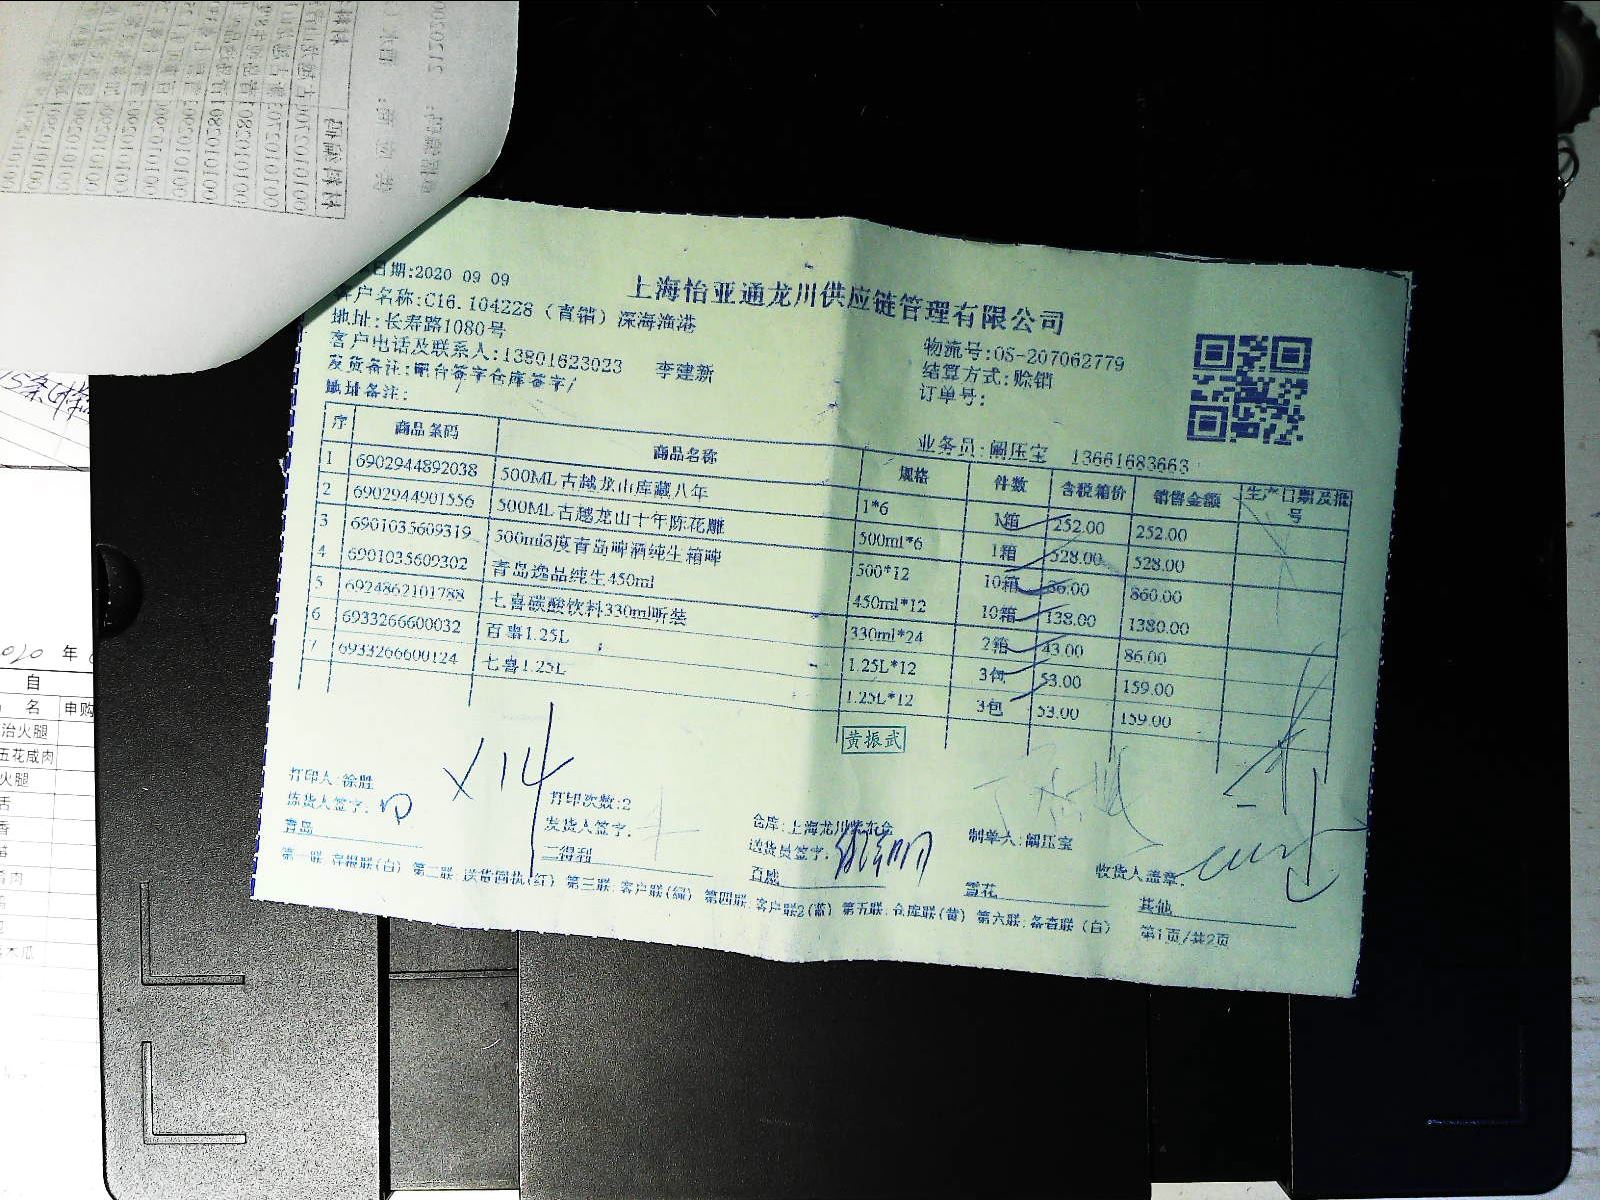 日期:2020 09 09
上海怡亚通龙川供应链管理有限公司
客户名称:C16.104228（直销）深海渔港
地址:长寿路1080号
物流号:OS-207062779
客户电话及联系人:13801623023 李建新
结算方式:赊销
发货备注:吧台签字仓库签字/
订单号:
地址备注:
业务员:阚压宝 13661683663
序 商品条码 商品名称 规格 件数 含税箱价 销售金额 生产日期及批号
1 6902944892038 500ML古越龙山库藏八年 1*6 1箱 252.00 252.00
2 6902944901556 500ML古越龙山十年陈花雕 500ml*6 1箱 528.00 528.00
3 6901035609319 500ml8度青岛啤酒纯生箱啤 500*12 10箱 86.00 860.00
4 6901035609302 青岛逸品纯生450ml 450ml*12 10箱 138.00 1380.00
5 6924862101788 七喜碳酸饮料330ml听装 330ml*24 2箱 43.00 86.00
6 6933266600032 百事1.25L 1.25L*12 3包 53.00 159.00
7 6933266600124 七喜1.25L 1.25L*12 3包 53.00 159.00
黄振武
X14
打印人:徐胜 打印次数:2 仓库:上海龙川 制单人:阚压宝
拣货人签字: 发货人签字: 送货员签字: 收货人盖章:
青岛 三得利 百威 雪花 其他
第一联:存根联(白) 第二联:送货回执(红) 第三联:客户联(绿) 第四联:客户联2(蓝) 第五联:仓库联(黄) 第六联:备查联(白) 第1页/共2页
年
自
名 申购
治火腿
五花咸肉
火腿
舌
香
肉
木瓜